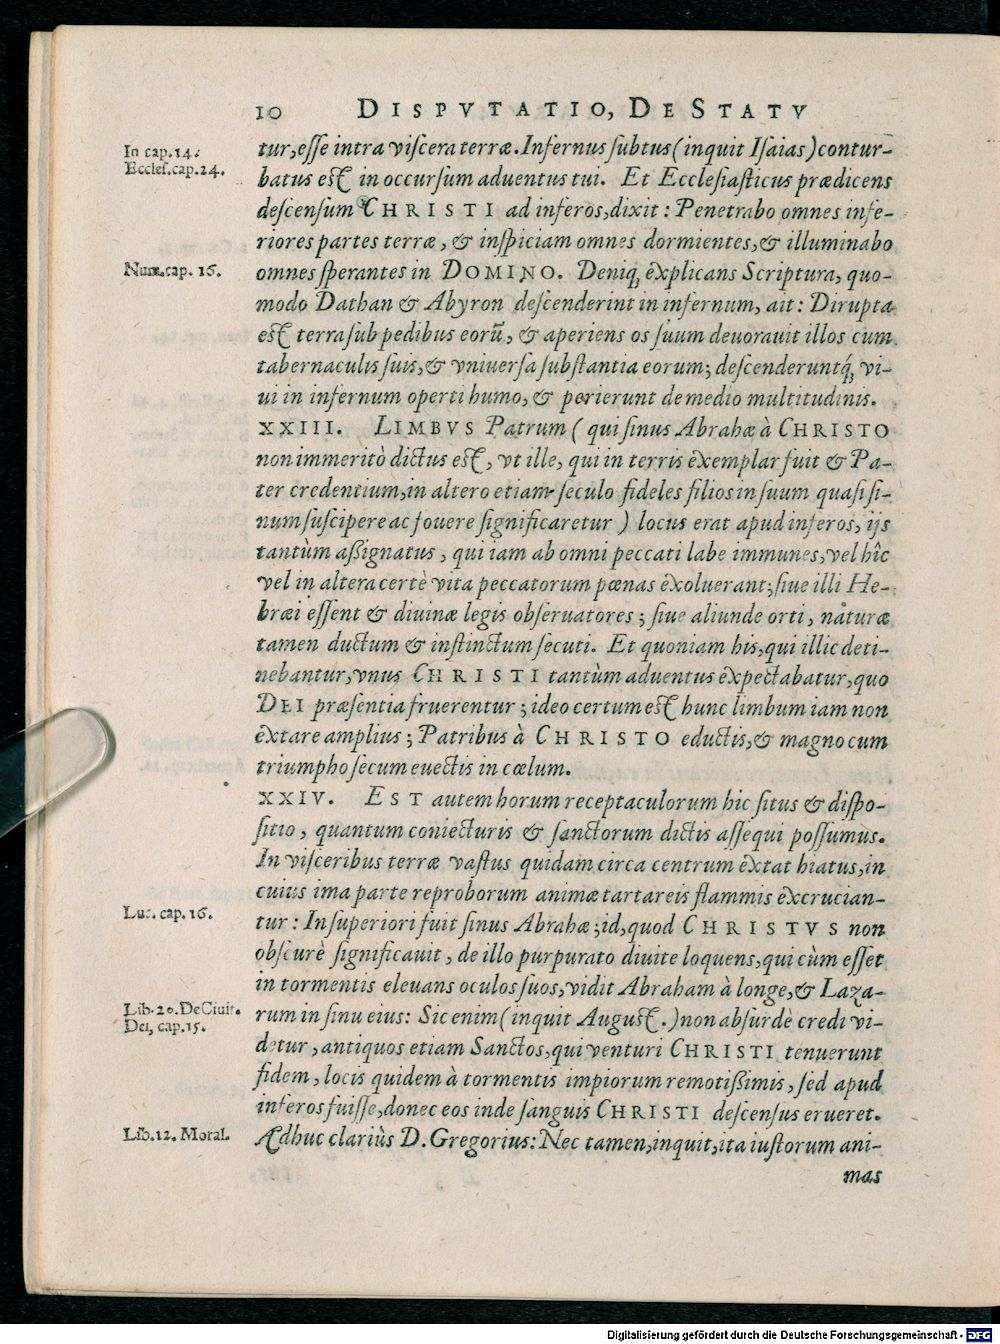 10 DISPVTATIO, DE STATV
In cap. 14.
Eccles. cap. 24.
tur, esse intra viscera terræ. Infernus subtus (inquit Isaias) contur-
batus est in occursum aduentus tui. Et Ecclesiasticus prædicens
descensum CHRISTI ad inferos, dixit: Penetrabo omnes infe-
riores partes terræ, & inspiciam omnes dormientes, & illuminabo
Num. cap. 16.
omnes sperantes in DOMINO. Deniq; explicans Scriptura, quo-
modo Dathan & Abyron descenderint in infernum, ait: Dirupta
est terra sub pedibus eorũ, & aperiens os suum deuorauit illos cum
tabernaculis suis, & vniuersa substantia eorum; descenderuntq́; vi-
ui in infernum operti humo, & perierunt de medio multitudinis.
XXIII. LIMBVS Patrum (qui sinus Abrahæ à CHRISTO
non immeritò dictus est, vt ille, qui in terris exemplar fuit & Pa-
ter credentium, in altero etiam seculo fideles filios in suum quasi si-
num suscipere ac fouere significaretur) locus erat apud inferos, ijs
tantùm assignatus, qui iam ab omni peccati labe immunes, vel hîc
vel in altera certè vita peccatorum pœnas exoluerant; siue illi He-
bræi essent & diuinæ legis obseruatores; siue aliunde orti, naturæ
tamen ductum & instinctum secuti. Et quoniam his, qui illic deti-
nebantur, vnus CHRISTI tantùm aduentus expectabatur, quo
DEI præsentia fruerentur; ideo certum est hunc limbum iam non
extare amplius; Patribus à CHRISTO eductis, & magno cum
triumpho secum euectis in cœlum.
XXIV. EST autem horum receptaculorum hic situs & dispo-
sitio, quantum coniecturis & sanctorum dictis assequi possumus.
In visceribus terræ vastus quidam circa centrum extat hiatus, in
cuius ima parte reproborum animæ tartareis flammis excrucian-
Luc. cap. 16.
tur: In superiori fuit sinus Abrahæ; id, quod CHRISTVS non
obscurè significauit, de illo purpurato diuite loquens, qui cùm esset
in tormentis eleuans oculos suos, vidit Abraham à longe, & Laza-
Lib. 20. De Ciuit.
Dei, cap. 15.
rum in sinu eius: Sic enim (inquit August.) non absurdè credi vi-
detur, antiquos etiam Sanctos, qui venturi CHRISTI tenuerunt
fidem, locis quidem à tormentis impiorum remotissimis, sed apud
inferos fuisse, donec eos inde sanguis CHRISTI descensus erueret.
Lib. 12. Moral.
Adhuc clariùs D. Gregorius: Nec tamen, inquit, ita iustorum ani-
mas
Digitalisierung gefördert durch die Deutsche Forschungsgemeinschaft - DFG